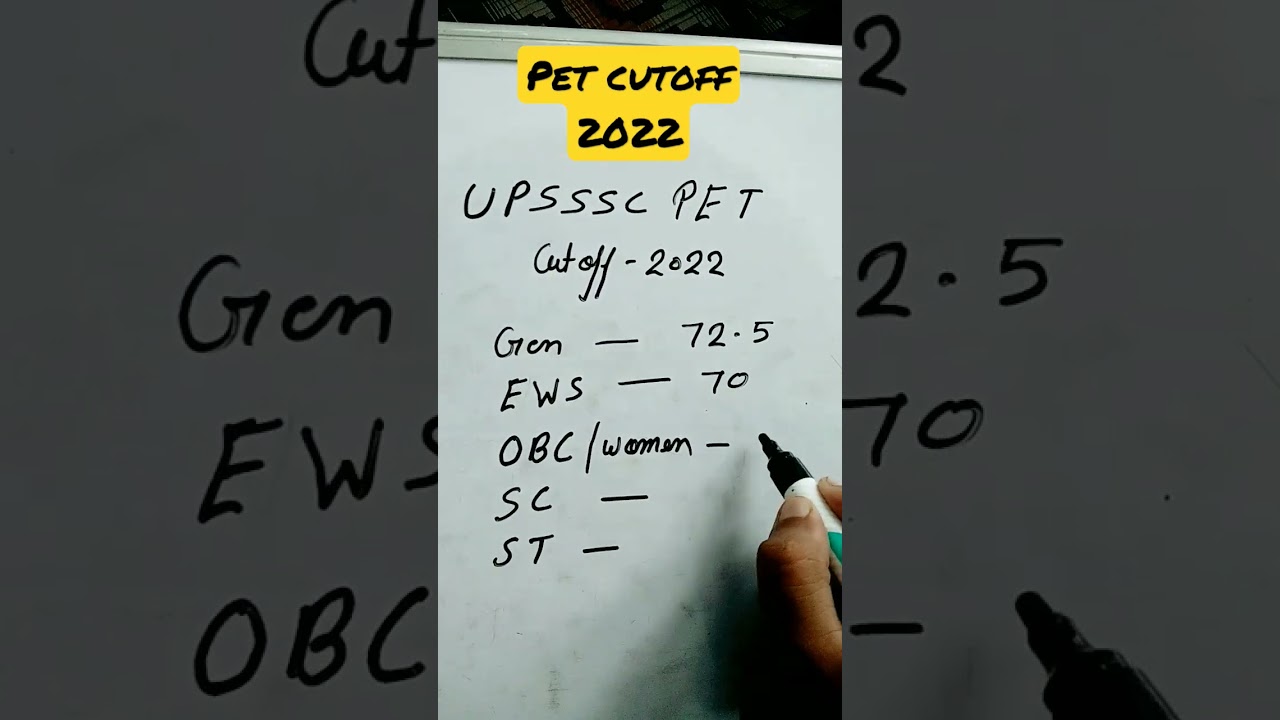 PET CUTOFF
2022
UPSSSC PET
Cutoff - 2022
Gen — 72.5
EWS — 70
OBC/women —
SC —
ST —